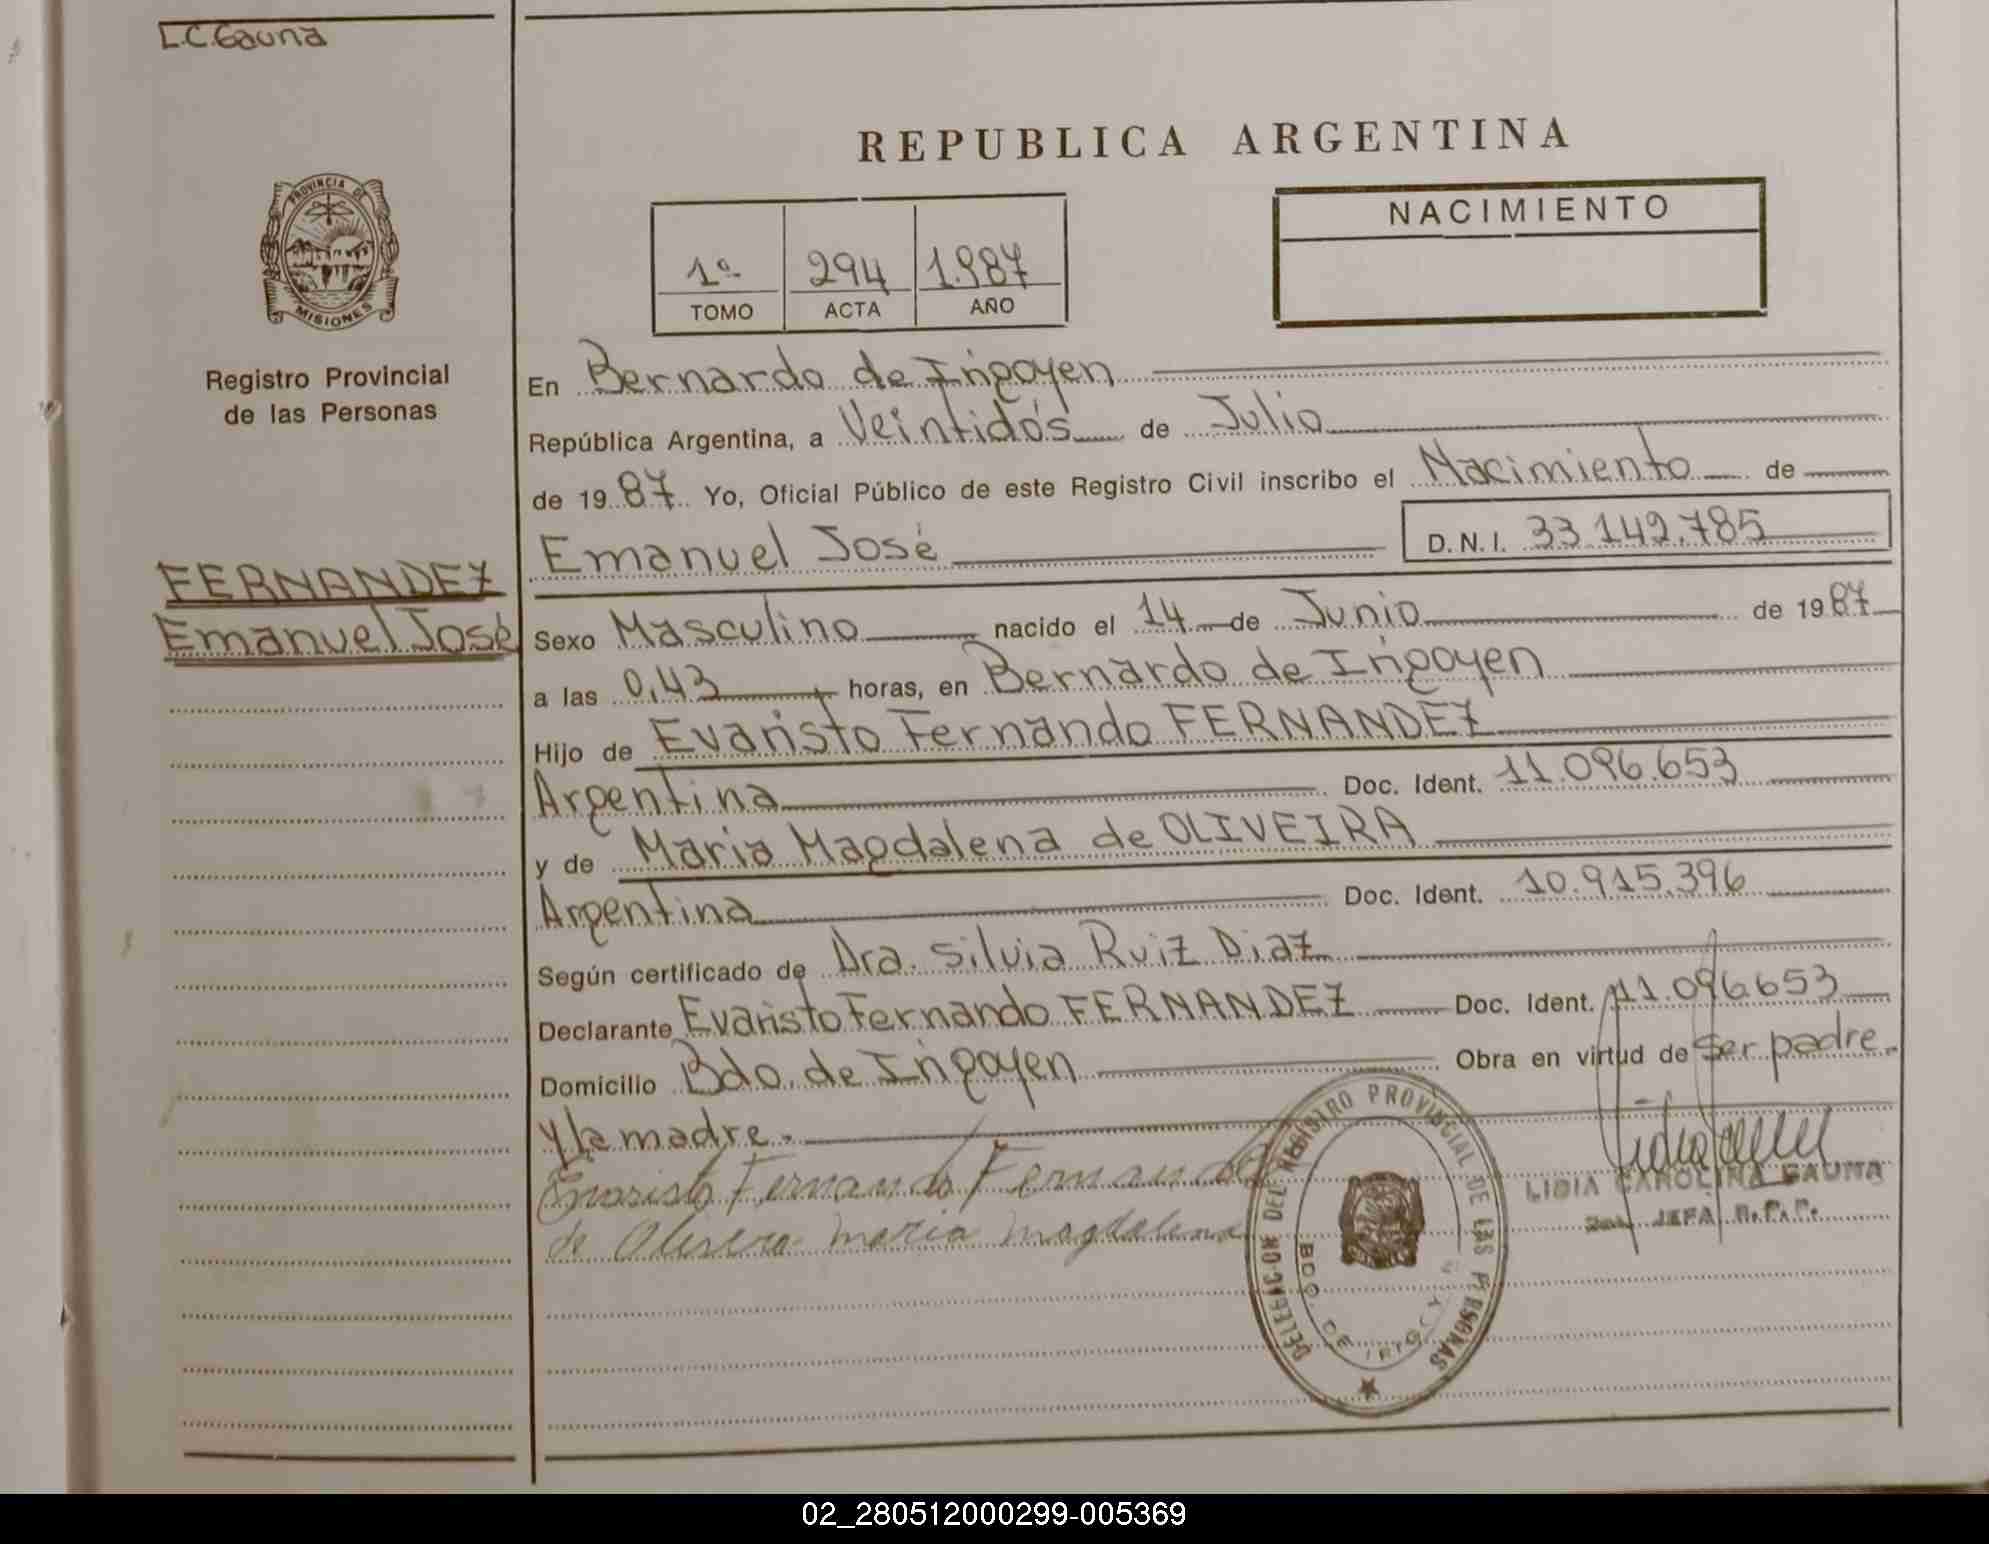 L.C. Gauna
PROVINCIA DE
MISIONES
Registro Provincial
de las Personas
FERNANDEZ
Emanuel José
REPUBLICA ARGENTINA
1º 294 1.987
TOMO ACTA AÑO
NACIMIENTO
En Bernardo de Irigoyen
República Argentina, a Veintidós de Julio
de 1987 Yo, Oficial Público de este Registro Civil inscribo el Nacimiento de
Emanuel José D.N.I. 33.142.785
Sexo Masculino nacido el 14 de Junio de 1987
a las 0,43 horas, en Bernardo de Irigoyen
Hijo de Evaristo Fernando FERNANDEZ
Argentina Doc. Ident. 11.096.653
y de Maria Magdalena de OLIVEIRA
Argentina Doc. Ident. 10.915.396
Según certificado de Dra. Silvia Ruiz Diaz
Declarante Evaristo Fernando FERNANDEZ Doc. Ident. 11.096.653
Domicilio Bdo. de Irigoyen Obra en virtud de Ser padre.
y la madre.
Evaristo Fernando Fernandez
de Olivera maria magdalena
DELEGACION DEL REGISTRO PROVINCIAL DE LAS PERSONAS
BDO. DE IRIGOYEN
LIDIA CAROLINA GAUNA
JEFA R.P.P.
02_280512000299-005369